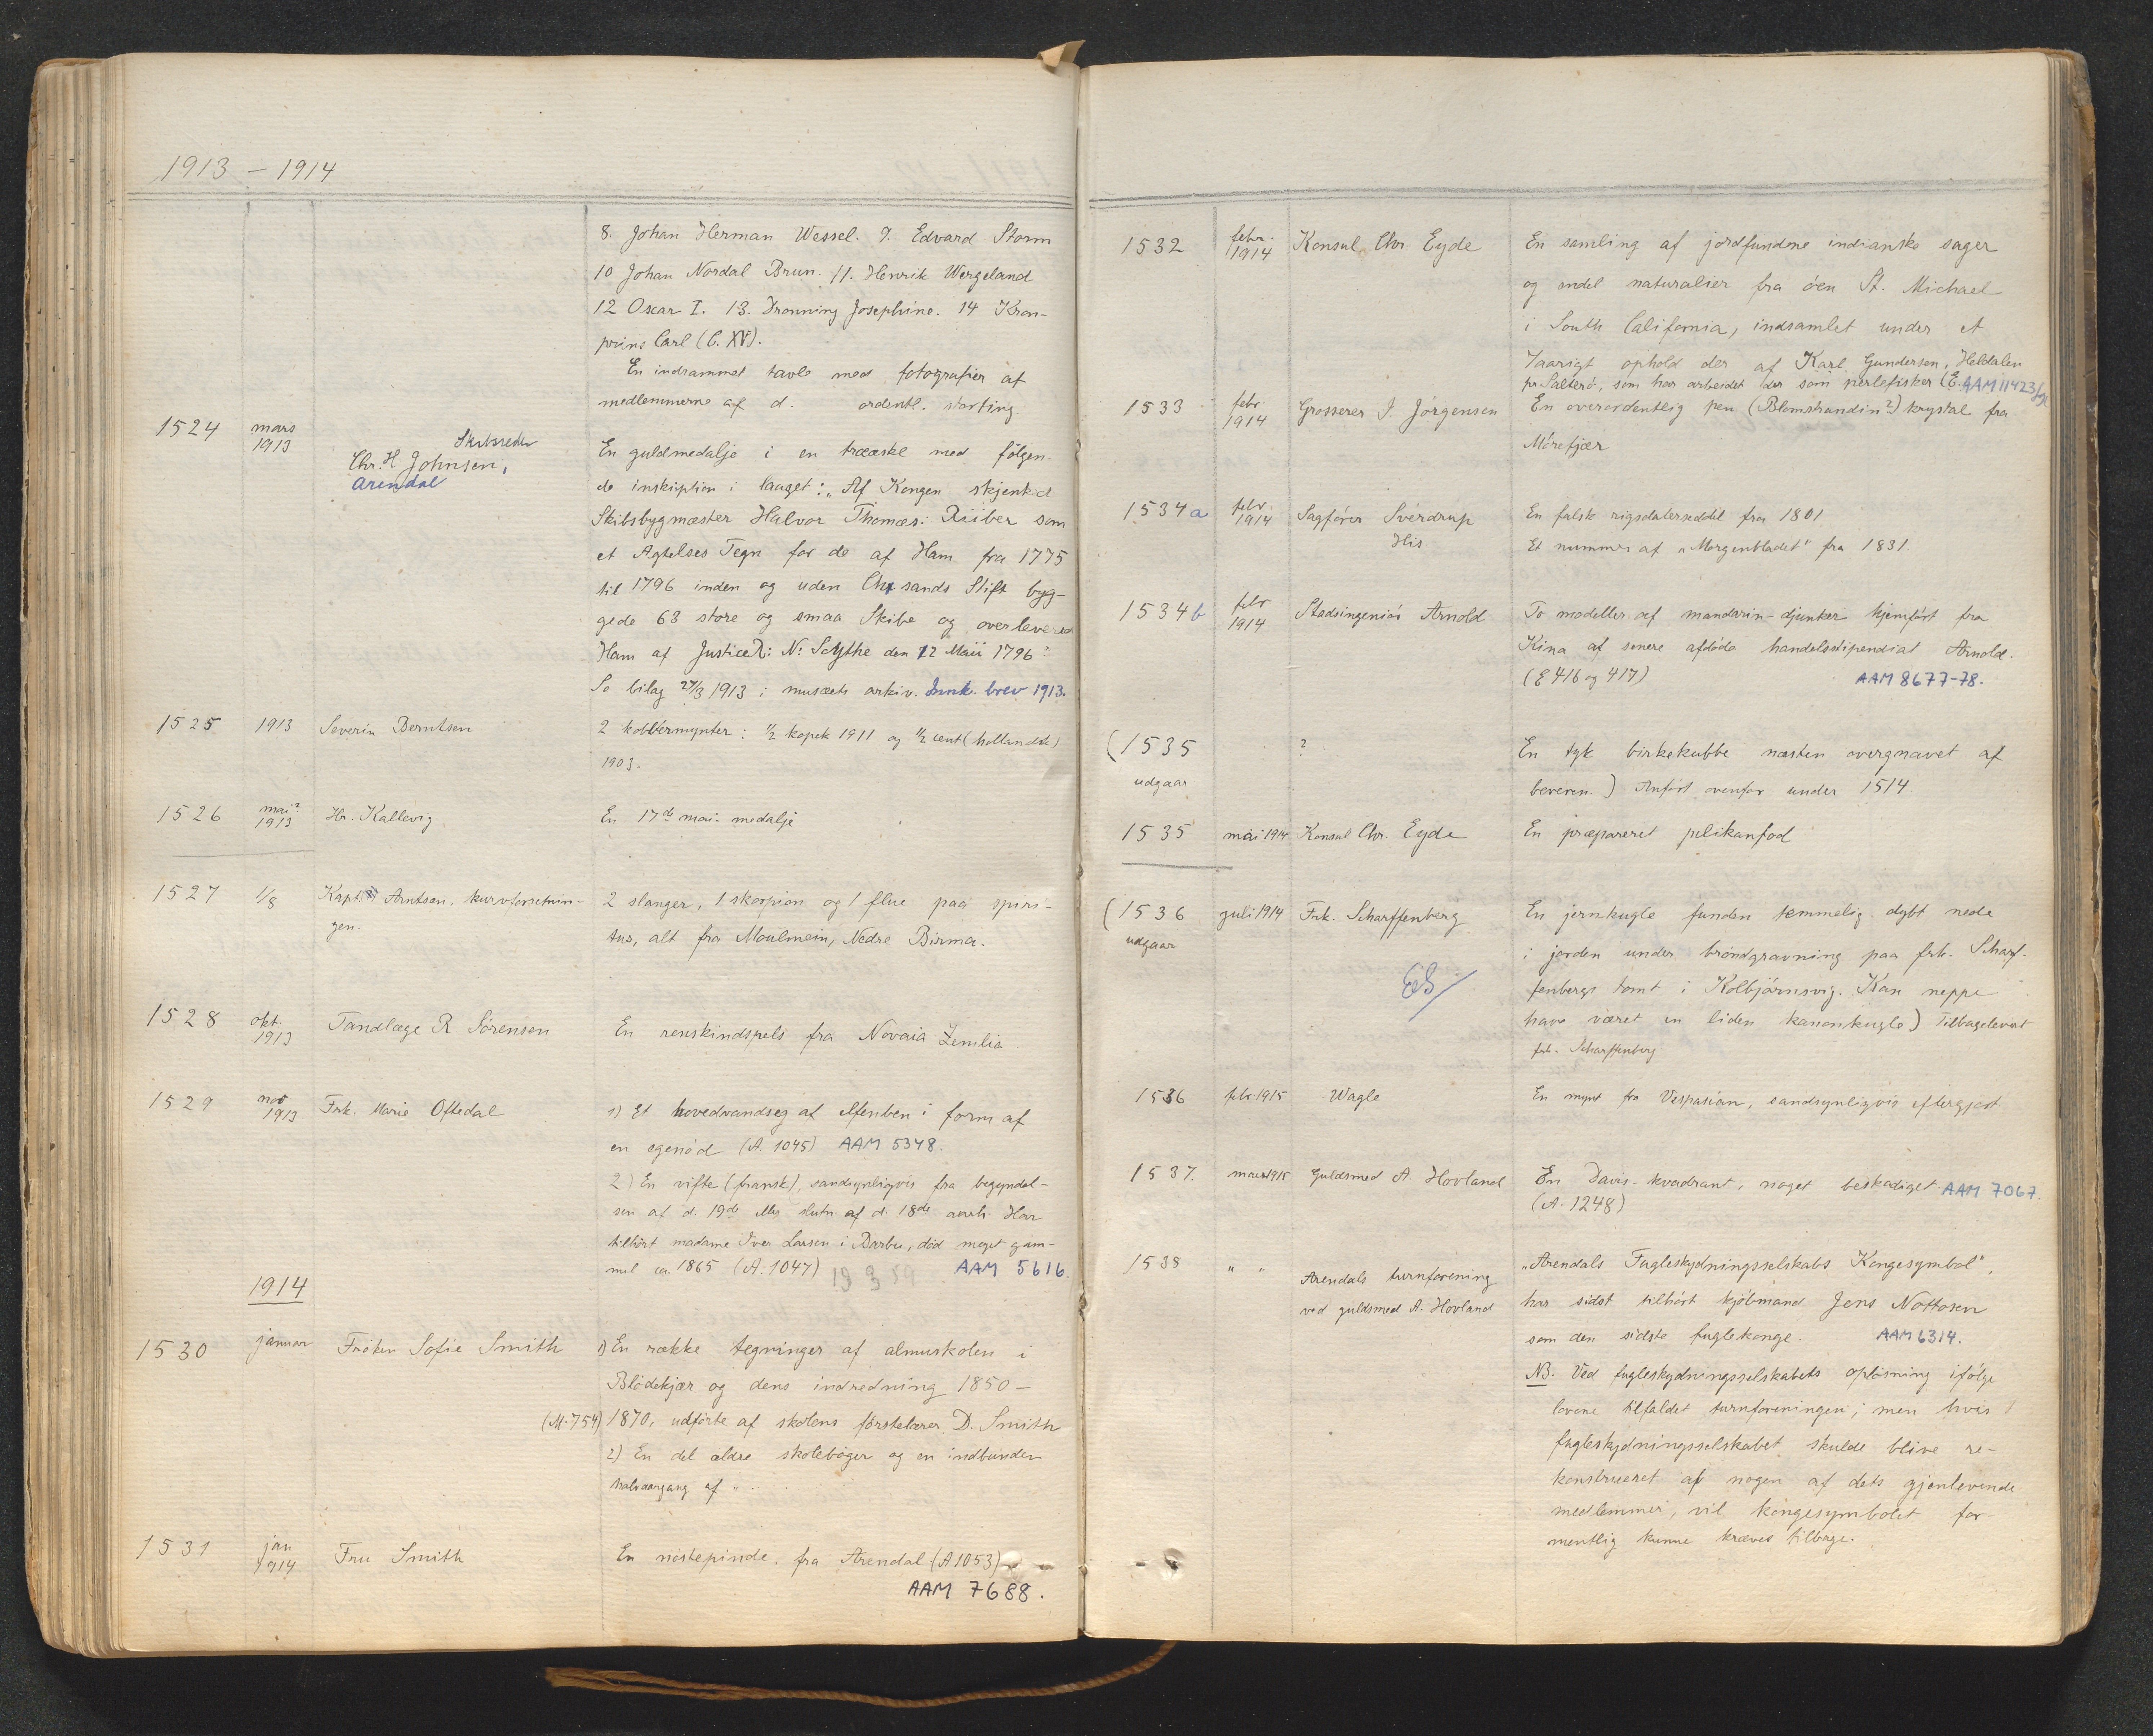 1913 – 1914
8. Johan Herman Wessel. 9. Edvard Storm
10 Johan Nordal Brun. 11. Henrik Wergeland
12 Oscar I. 13. Dronning Josephine. 14 Kron-
prins Carl (C. XV).
En indrammet tavle med fotografier af
medlemmerne af d. ordentl. storting
1524 mars 1913 Skibsreder Chr. H Johnsen, Arendal
En guldmedalje i en trææske med følgen-
de inskription i lauget: „Af Kongen skjenket
Skibsbygmæster Halvor Thomæs: Riiber som
et Agtelses Tegn for de af Ham fra 1775
til 1796 inden og uden Chr sands Stift byg-
gede 63 store og smaa Skibe og overlevered
Ham af JusticeR: N: Scythe den 12 Maii 1796"
Se bilag 27/3 1913 i musæets arkiv. Innk. brev 1913.
1525 1913 Severin Berntsen 2 kobbermynter: 1/2 kopek 1911 og 1/2 cent (hollandsk)
1903.
1526 mai? 1913 Hr. Kallevig En 17de mai-medalje
1527 1/8 Kapt. Arntsen, kurvforretnin- 2 slanger, 1 skorpion og 1 flue paa spiri-
gen. tus, alt fra Moulmein, Nedre Birma.
1528 okt. 1913 Tandlæge R Sørensen En renskindspels fra Novaia Zemlia
1529 nov 1913 Frk. Marie Oftedal 1) Et hovedvandseg af elfenben i form af
en egenød (A. 1045) AAM 5348.
2) En vifte (fransk), sandsynligvis fra begyndel-
sen af d. 19de eller slutn. af d. 18de aarh. Har
tilhørt madame Iver Larsen i Barbu, død meget gam-
mel ca. 1865 (A. 1047) AAM 5616.
1914
1530 januar Frøken Sofie Smith 1) En række tegninger af almuskolen i
Blødekjær og dens indredning 1850 –
(M. 754) 1870, udførte af skolens førstelærer D. Smith
2) En del ældre skolebøger og en indbunden
halvaargang af "
1531 jan 1914 Fru Smith En nøstepinde, fra Arendal (A1053)
AAM 7688.
1532 febr. 1914 Konsul Chr. Eyde En samling af jordfundne indianske sager
og endel naturalier fra øen St. Michael
i South California, indsamlet under et
7aarigt ophold der af Karl Gundersen, Heldalen
pr. Salterø, som har arbeidet der som perlefisker (E. AAM 11423
1533 febr 1914 Grosserer J. Jørgensen En overordentlig pen (Blomstrandin?) krystal fra
Mørefjær
1534a febr. 1914 Sagfører Sverdrup His En falsk rigsdalerseddel fra 1801
Et nummer af „Morgenbladet" fra 1831.
1534b febr 1914 Stadsingeniør Arnold To modeller af mandarin-djunker hjemført fra
Kina af senere afdøde handelsstipendiat Arnold.
(E 416 og 417) AAM 8677-78.
(1535 ? En tyk birkekubbe næsten overgnavet af
udgaar beveren.) Anført ovenfor under 1514
1535 mai 1914 Konsul Chr. Eyde En præpareret pelikanfod
(1536 juli 1914 Frk. Scharffenberg En jernkugle funden temmelig dybt nede
udgaar i jorden under brøndgravning paa frk. Scharf-
fenbergs tomt i Kolbjørnsvig. Kan neppe
have været en liden kanonkugle) Tilbagelevert
frk. Scharffenberg
1536 febr. 1915 Wagle En mynt fra Vespasian, sandsynligvis eftergjort.
1537. mars 1915 Guldsmed A. Hovland En Davis-kvadrant, noget beskadiget. AAM 7067.
(A. 1248)
1538 " " Arendals turnforening „Arendals Fugleskydningsselskabs Kongesymbol",
ved guldsmed A. Hovland har sidst tilhørt kjøbmand Jens Nottosen
som den sidste fuglekonge. AAM 6314.
NB. Ved fugleskydningsselskabets opløsning ifølge
lovene tilfaldet turnforeningen; men hvis
fugleskydningsselskabet skulde blive re-
konstrueret af nogen af dets gjenlevende
medlemmer, vil kongesymbolet for-
mentlig kunne kræves tilbage.